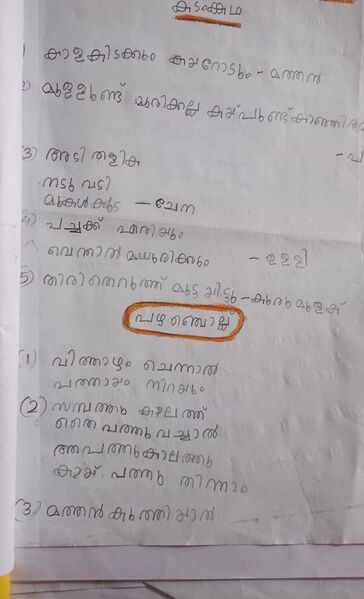 കടംകഥ
1) കാള കിടക്കും കയറോടും - മത്തൻ
2) മുള്ളുണ്ട് മുരിക്കല്ല കയ്പുണ്ട് കാഞ്ഞിര
- പ
3) അടി തളിക
നടു വടി
മുകൾക്കുട - ചേന
4) പച്ചക്ക് എരിയും
വെന്താൽ മധുരിക്കും - ഉള്ളി
5) തിരി തെറുത്ത് മുട്ടയിട്ടു - കുരുമുളക്
പഴഞ്ചൊല്ല്
(1) വിത്താഴം ചെന്നാൽ
പത്തായം നിറയും
(2) സമ്പത്തു കാലത്ത്
തൈ പത്തു വച്ചാൽ
ആപത്തുകാലത്തു
കായ് പത്തു തിന്നാം
(3) മത്തൻ കുത്തിയാൽ